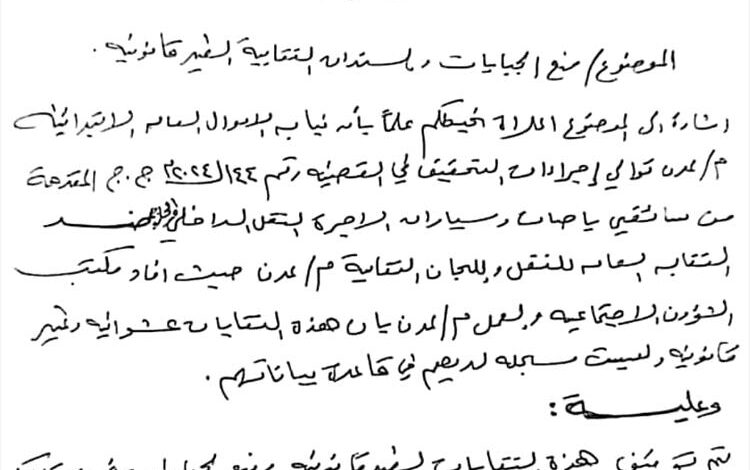 الموضوع/ منع الجبايات والسندات النقابية الغير قانونيه.
اشارة الى الموضوع اعلاة نحيطكم علماً بأن نيابه الاموال العامه الابتدائيه
م/عدن توالي إجراءات التحقيق في القضيه رقم ١٤٤ل٢٠٢٤م ج.ج المقدمة
من سائقي باصات وسيارات الاجرة للنقل الداخلي ضد
النقابه العامه للنقل واللجان النقابية م/عدن حيث افاد مكتب
الشؤون الاجتماعيه والعمل م/عدن بان هذه النقابات عشوائيه وغير
قانونيه وليست مسجله لديهم في قاعدة بياناتهم.
وعليـــة:
هذة النقابات